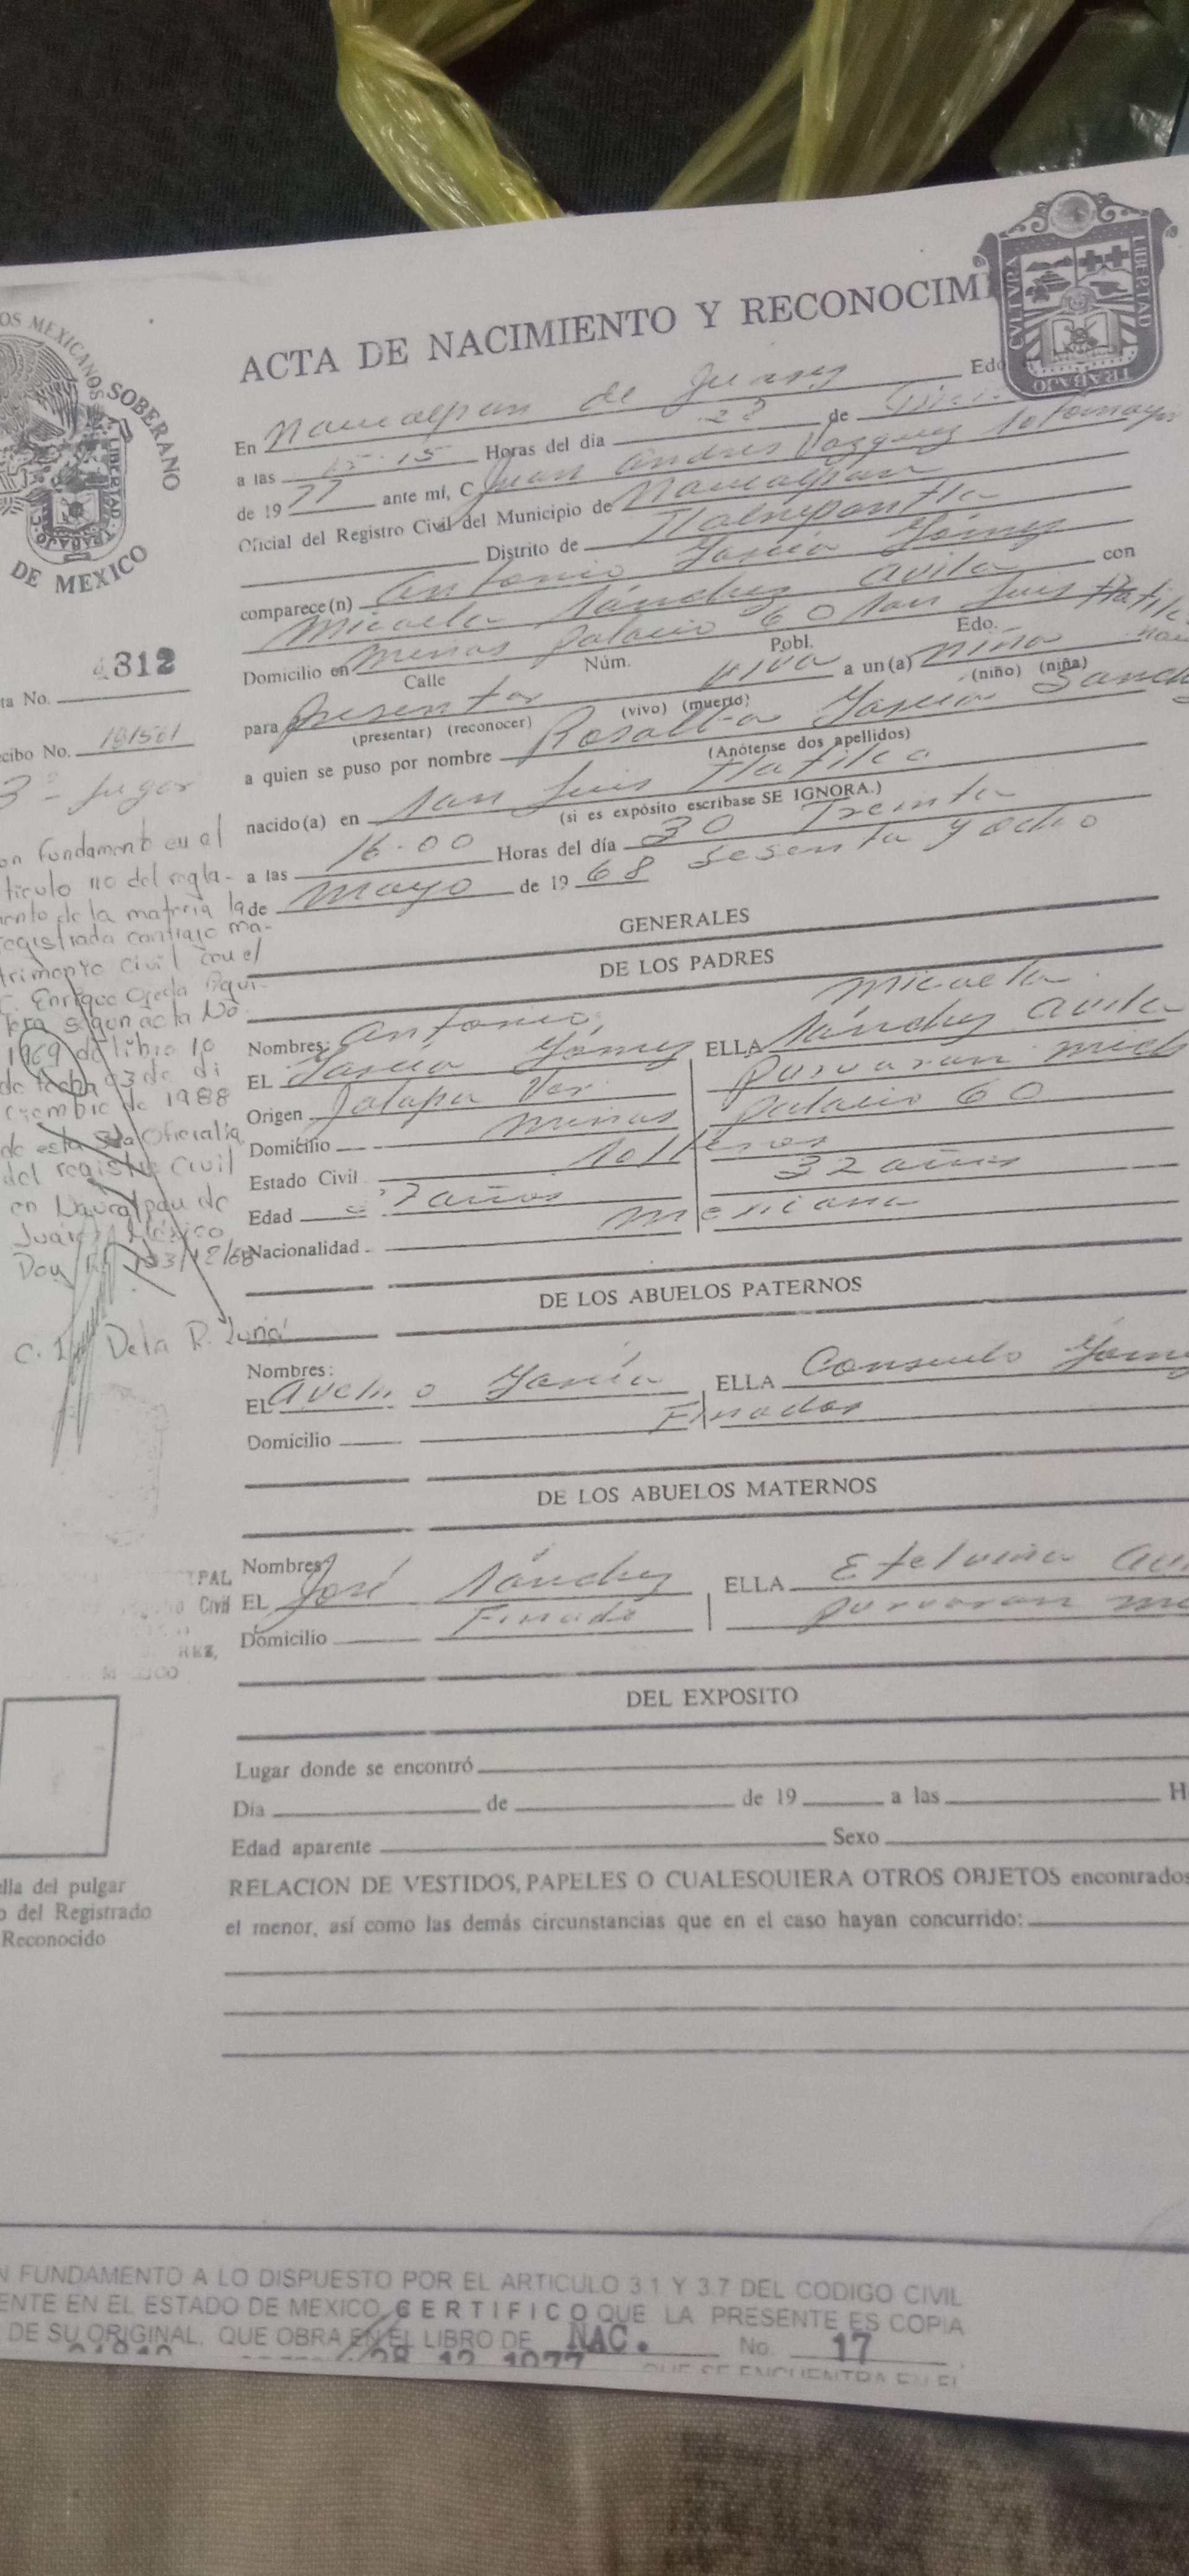 OS MEXICANOS
SOBERANO
DE MEXICO
CULTURA
LIBERTAD
TRABAJO
ACTA DE NACIMIENTO Y RECONOCIMI
En Naucalpan de Juarez Edo
a las 15-15 Horas del día 28 de
de 1977 ante mí, C Juan Andres Vazquez Sotomayor
Oficial del Registro Civil del Municipio de Naucalpan
Distrito de Tlalnepantla
comparece(n) Antonio García Gómez con
Micaela Sánchez Avila
Domicilio en Minas Palacio 60 San Luis Tlatilco
Calle Núm. Pobl. Edo.
para Presentar viva a un(a) niña
(presentar) (reconocer) (vivo) (muerto) (niño) (niña)
a quien se puso por nombre Rosalba García Sanch
(Anótense dos apellidos)
nacido(a) en San Luis Tlatilco
(si es expósito escríbase SE IGNORA.)
a las 16-00 Horas del día 30 Treinta
de Mayo de 1968 Sesenta y ocho
GENERALES
DE LOS PADRES
Nombres: Antonio Micaela
EL García Gómez ELLA Sánchez Avila
Origen Jalapa Ver. Puruaran Mich
Domicilio Minas Palacio 60
Estado Civil Solteros
Edad 7 años 32 años
Nacionalidad Mexicana
DE LOS ABUELOS PATERNOS
Nombres:
EL Avelino García ELLA Consuelo Góme
Domicilio Finados
DE LOS ABUELOS MATERNOS
Nombres
EL José Sánchez ELLA Etelvina Avi
Domicilio Finado Puruaran
DEL EXPOSITO
Lugar donde se encontró
Día de de 19 a las H
Edad aparente Sexo
RELACION DE VESTIDOS, PAPELES O CUALESQUIERA OTROS OBJETOS encontrados
el menor, así como las demás circunstancias que en el caso hayan concurrido:
ta No. 312
cibo No. 181501
3º Jugar
on fundamento en el
ticulo 110 del regla-
ento de la materia la
registrada contrajo ma-
trimonio civil con el
C. Enrique Ojeda Agui-
lera segun acta No
1969 de libro 10
de fecha 03 de di
ciembre de 1988
de esta Oficialia
del registro Civil
en Naucalpan de
Juarez México
Doy
C. De la R.
PAL
Civil
REZ,
lla del pulgar
o del Registrado
Reconocido
N FUNDAMENTO A LO DISPUESTO POR EL ARTICULO 3.1 Y 3.7 DEL CODIGO CIVIL
ENTE EN EL ESTADO DE MEXICO, CERTIFICO QUE LA PRESENTE ES COPIA
DE SU ORIGINAL, QUE OBRA EN EL LIBRO DE NAC. No. 17
28 12 1977 QUE SE ENCUENTRA EN EL